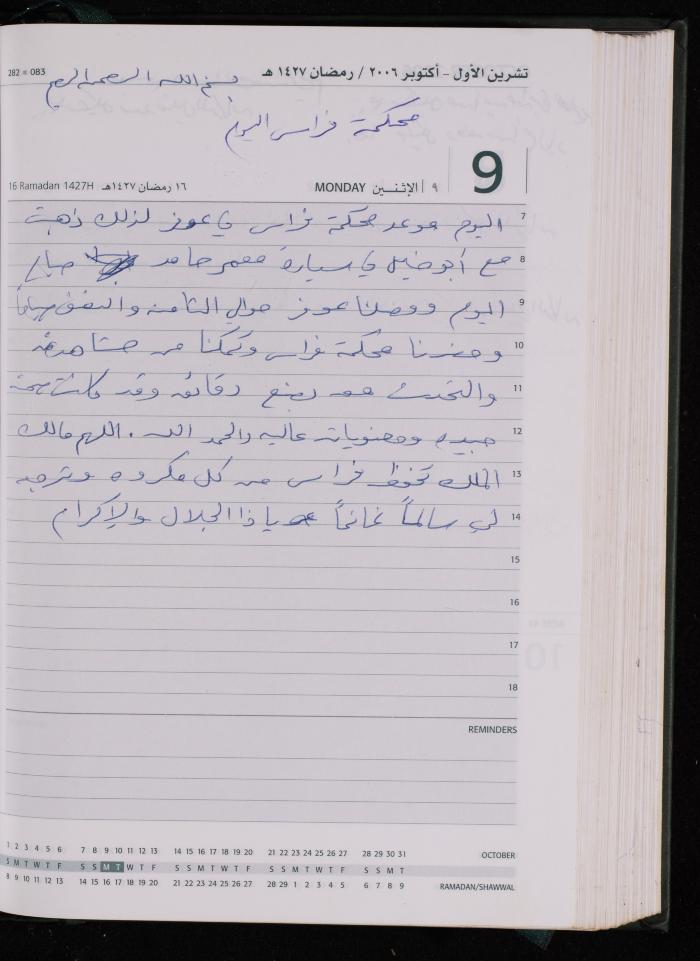 282 = 083
تشرين الأول - أكتوبر ٢٠٠٦ / رمضان ١٤٢٧ هـ
بسم الله الرحمن الرحيم
محكمة فراس اليوم
9
16 Ramadan 1427H ١٦ رمضان ١٤٢٧هـ MONDAY الإثنـين ٩
7 اليوم موعد محكمة فراس في عوفر لذلك ذهبت
8 مع أبو خليل في سيارة معمر حامد صباح
9 اليوم ووصلنا عوفر حوالي الثامنة والنصف صباحاً
10 وحضرنا محكمة فراس وتمكنا من مشاهدته
11 والتحدث معه بضع دقائق وقد كانت صحته
12 جيده ومعنويات عاليه والحمد الله . اللهم مالك
13 الملك تحفظ فراس من كل مكروه وترجعه
14 لي سالماً غانماً يا ذا الجلال والإكرام
15
16
17
18
REMINDERS
1 2 3 4 5 6 7 8 9 10 11 12 13 14 15 16 17 18 19 20 21 22 23 24 25 26 27 28 29 30 31 OCTOBER
S M T W T F S S M T W T F S S M T W T F S S M T W T F S S M T
8 9 10 11 12 13 14 15 16 17 18 19 20 21 22 23 24 25 26 27 28 29 1 2 3 4 5 6 7 8 9 RAMADAN/SHAWWAL